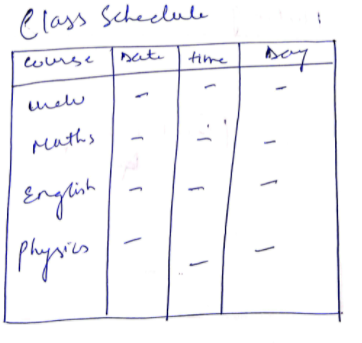 Class Schedule
course Date time Day
Maths - - -
English - - -
Physics - - -